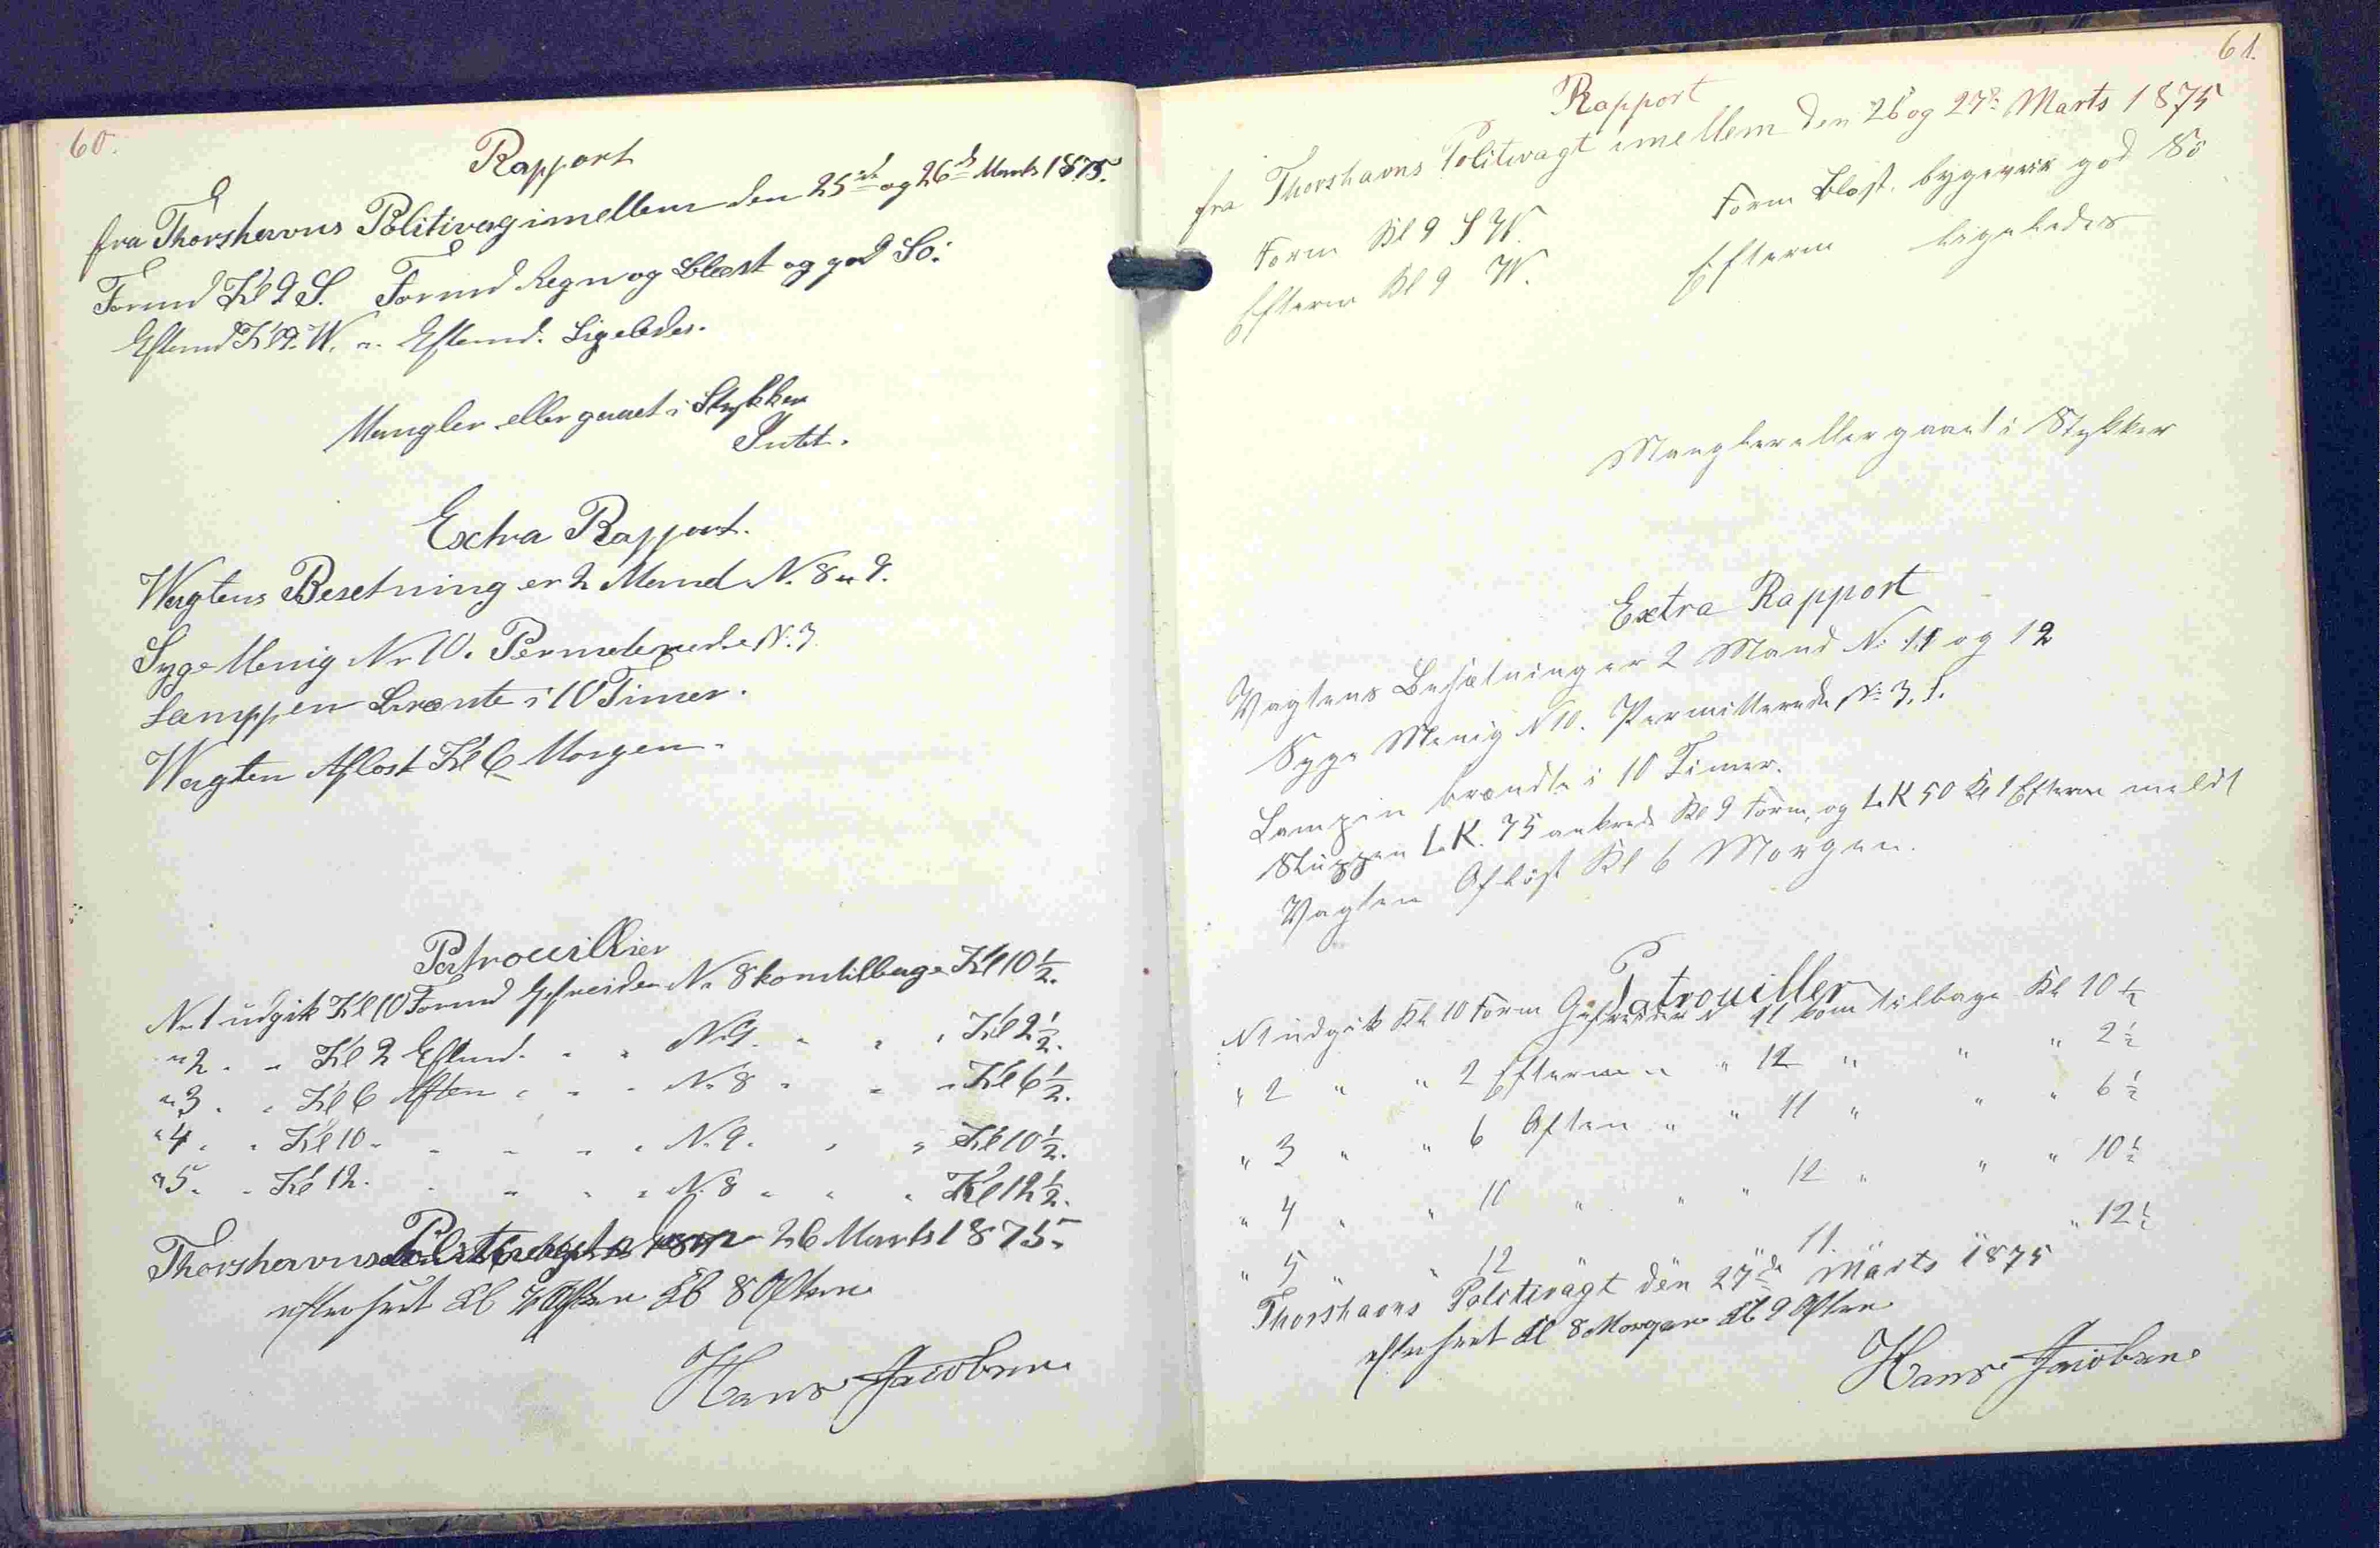 60.
Rapport
fra Thorshavns Politivagt imellem den 25de og 26de Marts 1875.
Formd Kl 9 S. Formd Regn og Blæst og god So.
Eftermd Kl 9. W. " Eftermd. Ligeledes.
Mangler eller gaaet i Stykker
Intet.
Extra Rapport.
Wagtens Besetning er 2 Mand N. 8 " 9.
Syge Menig Nr 10. Permeterede N. 3.
Lamppen Brænte i 10 Timer.
Wagten Aflost Kl 6 Morgen.
Patrouillier
Nr 1 udgik Kl 10 Formd Gefreider Nr 8 kom tilbage Kl 10 ½.
" 2 " " Kl 2 Eftmd. " " N. 9. " " " Kl 2 ½.
" 3 " " Kl 6 Aften " " " Nr 8 " " " Kl 6 ½.
" 4 " " Kl 10 " " " " " N. 9. " " Kl 10 ½.
" 5 " " Kl 12. " " " " N. 8 " " " Kl 12 ½.
Thorshavns 26 Marts 1875.
efterseet Kl Aften Kl 8 Aften
Hans Jacobsen
61.
Rapport
fra Thorshavns Politivagt imellem den 26 og 27de Marts 1875
Form Kl 9 S W. Form Blæst. god Sö
Efterm Kl 9 W. Efterm ligeledes
Mangler eller gaaet i Stykker
Extra Rapport
Vagtens Besætning er 2 Mand N: 11 og 12
Syge Menig N 10. Permitterede N: 3,
Lampen brændte i 10 Timer.
Sluppen L.K. 75 ankrede Kl 9 Form, og L.K 50 Kl 1 Efterm meldt
Vagten Aflöst Kl 6 Morgen.
Patrouiller
N 1 udgik Kl 10 Form Gefreider N 11 kom tilbage Kl 10 ½
" 2 " " 2 Efterm " " 12 " " " 2 ½
" 3 " " 6 Aften " " 11 " " " 6 ½
" 4 " " 10 " " " 12 " " " 10 ½
" 5 " " 12 11 " 12 ½
Thorshavns Politivagt den 27de Marts 1875
efterseet Kl 8 Morgen Kl 9 Aften
Hans Jacobsen